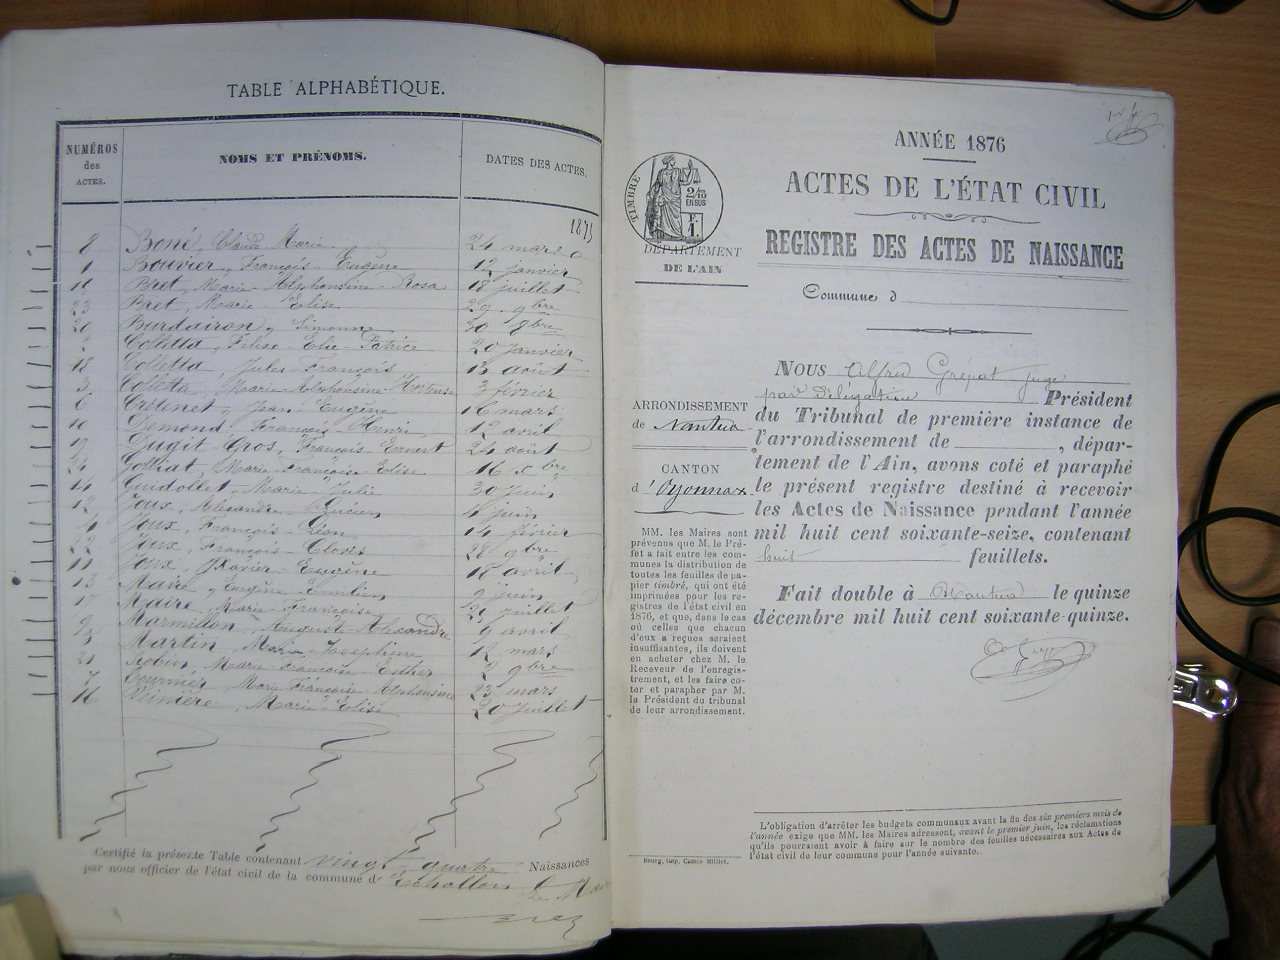 TABLE ALPHABÉTIQUE.
NUMÉROS des ACTES.
NOMS ET PRÉNOMS.
DATES DES ACTES.
1875
8 Boné, Claude Marie 24 mars
1 Bouvier, François-Eugène 12 janvier
Bret, Marie-Alphonsine-Rosa 18 juillet
23 Bret, Marie Elise 29 9bre
20 Burdairon, Simonne 30 8bre
2 Colletta, Félise-Elie-Patrice 20 janvier
18 Colletta, Jules-François 13 août
3 Colletta, Marie-Alphonsine-Hortense 3 février
6 Crétinet, Jean-Eugène 16 mars
10 Demond, François-Henri 12 avril
19 Dugit-Gros, François-Ernest 24 août
24 Golliat, Marie-Françoise-Elise 16 xbre
14 Guidollet, Marie-Julie 30 juin
12 Joux, Alexandre-Lucien 4 juin
4 Joux, François-Léon 14 février
22 Joux, François-Clovis 28 9bre
11 Joux, Xavier-Eugène 18 avril
13 Maire, Eugène-Emilien 9 juin
17 Maire, Marie-Françoise 29 juillet
9 Marmillon, Auguste-Alexandre 9 avril
5 Martin, Marie-Josephine 12 mars
21 Robin, Marie-Françoise-Esther 2 9bre
7 Tournier, Marie-Françoise-Alphonsine 23 mars
16 Marie-Elise 20 juillet
Certifié la présente Table contenant vingt quatre Naissances
par nous officier de l'état civil de la commune d'Echallon
Le Maire
ANNÉE 1876
ACTES DE L'ÉTAT CIVIL
REGISTRE DES ACTES DE NAISSANCE
TIMBRE
2/10
EN SUS
F.
1.
DÉPARTEMENT
DE L'AIN
Commune d
NOUS Alfred Grépat juge
par Délégation Président
du Tribunal de première instance de
l'arrondissement de , dépar-
tement de l'Ain, avons coté et paraphé
le présent registre destiné à recevoir
les Actes de Naissance pendant l'année
mil huit cent soixante-seize, contenant
huit feuillets.
Fait double à Nantua le quinze
décembre mil huit cent soixante-quinze.
ARRONDISSEMENT
de Nantua
CANTON
d'Oyonnax
MM. les Maires sont
prévenus que M. le Pré-
fet a fait entre les com-
munes la distribution de
toutes les feuilles de pa-
pier timbré, qui ont été
imprimées pour les re-
gistres de l'état civil en
1876, et que, dans le cas
où celles que chacun
d'eux a reçues seraient
insuffisantes, ils doivent
en acheter chez M. le
Receveur de l'enregis-
trement, et les faire co-
ter et parapher par M.
le Président du tribunal
de leur arrondissement.
Bourg, imp. Comte Milliet.
L'obligation d'arrêter les budgets communaux avant la fin des six premiers mois de
l'année exige que MM. les Maires adressent, avant le premier juin, les réclamations
qu'ils pourraient avoir à faire sur le nombre des feuilles nécessaires aux Actes de
l'état civil de leur commune pour l'année suivante.